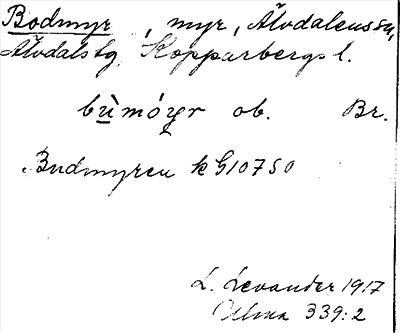 Bodmyr, myr, Älvdalens sn,
Älvdals tg, Kopparbergs l.
bù̲móyr ob. Br.
Budmyren k G10750
L. Levander 1917
Ulma 339:2